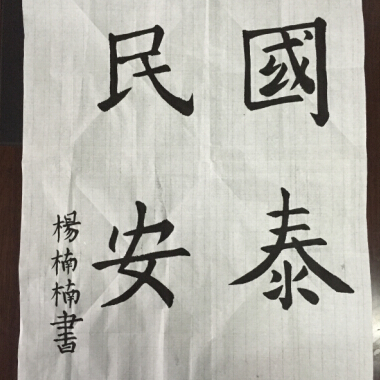 國泰
民安
楊楠楠書